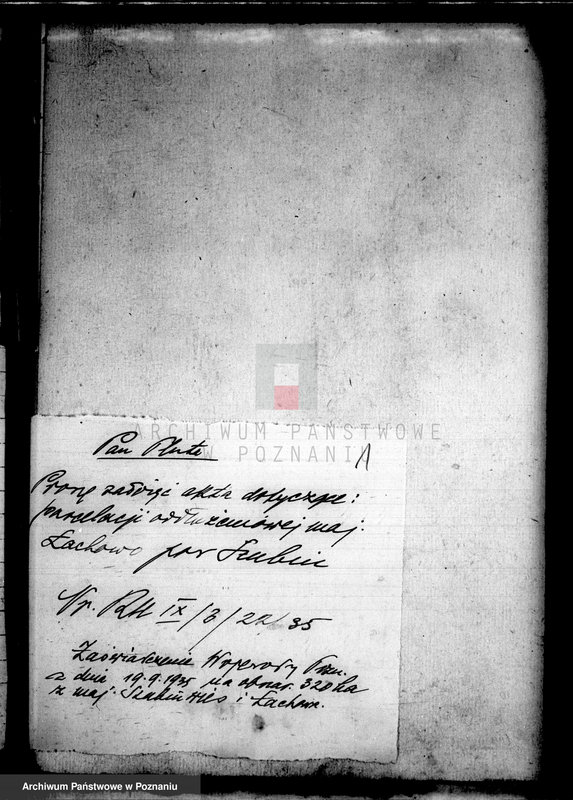 Pan Plute
1
Proszę założyć akta dotyczące:
parcelacji oddłużeniowej maj.
Łachowo pow Szubin
Nr. RU IX/3/22/35
Zaświadczenie Wojewody Pozn.
z dnia 19.9.1935 na obszar 320 ha
z maj. Szubin Wieś i Łachowo.
ARCHIWUM PAŃSTWOWE
W POZNANIU
Archiwum Państwowe w Poznaniu